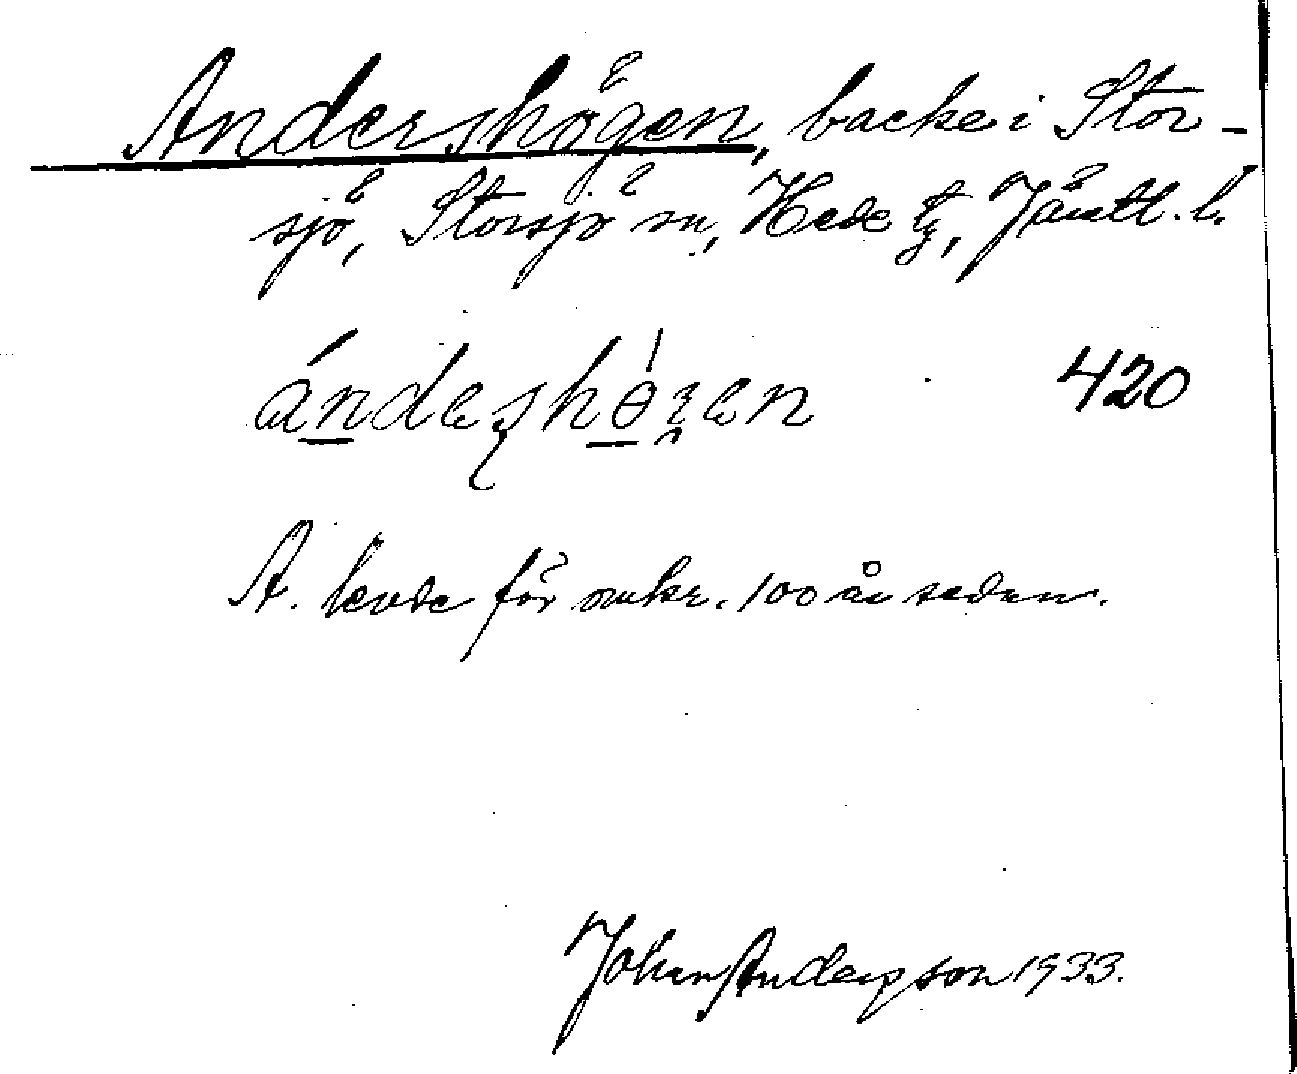 Andershögen, backe i Stor-
sjö, Storsjö sn, Hede tg, Jämtl. l.
ándeshö́gen 420
A. levde för omkr. 100 år sedan.
Johan Anderson 1933.